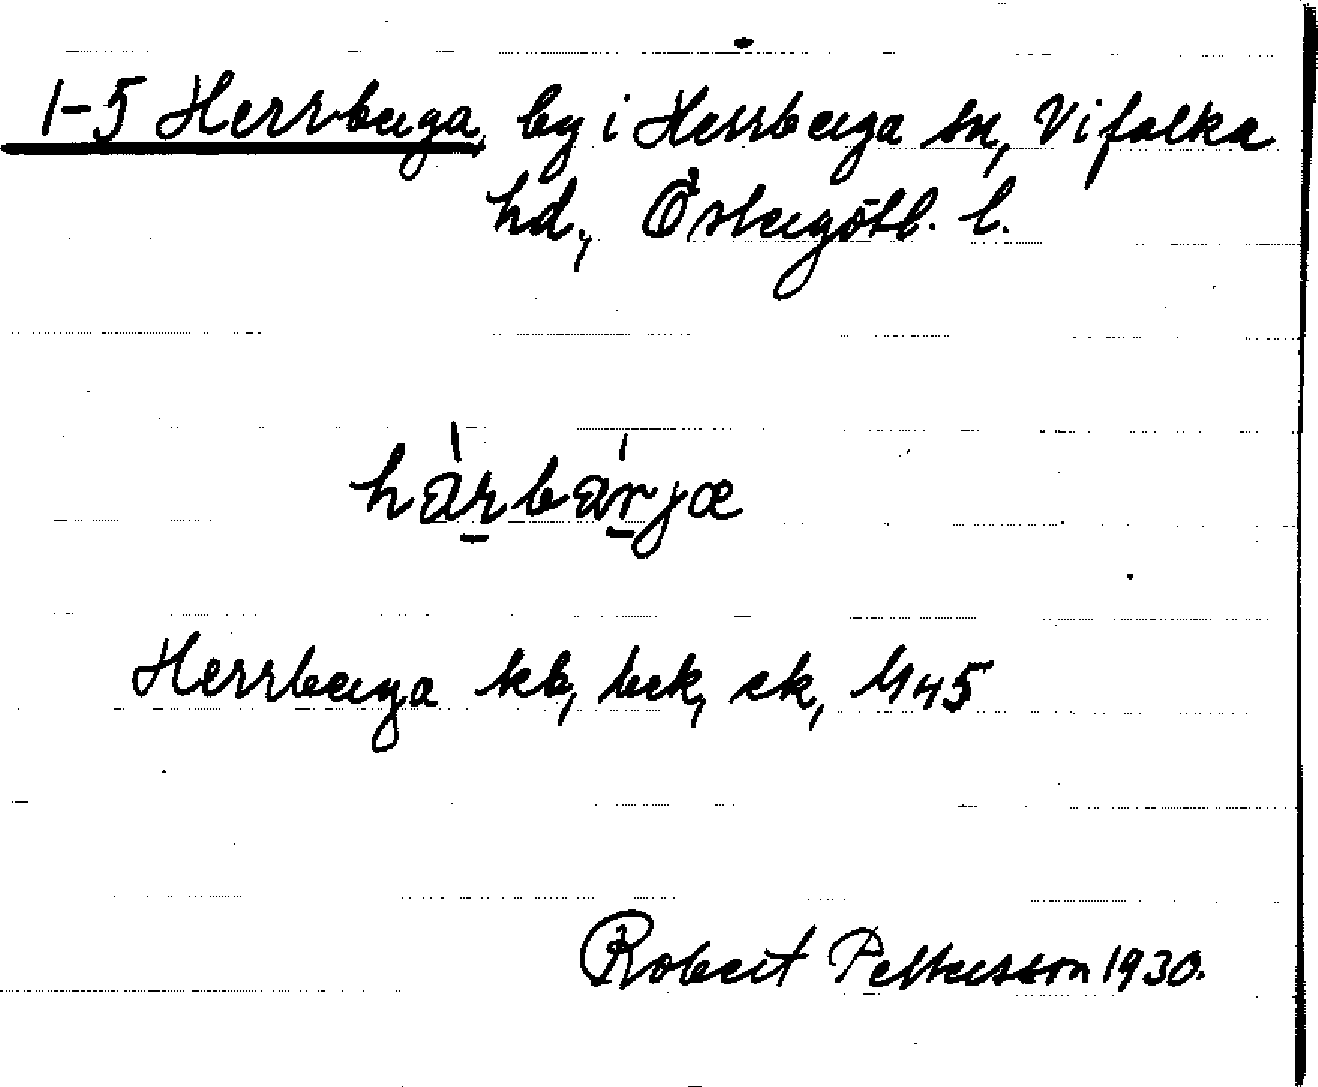 1-5 Herrberga, by i Herrberga sn, Vifolka
hd, Östergötl. l.
hàrbárjæ
Herrberga kb, bck, ck, M45
Robert Pettersson 1930.